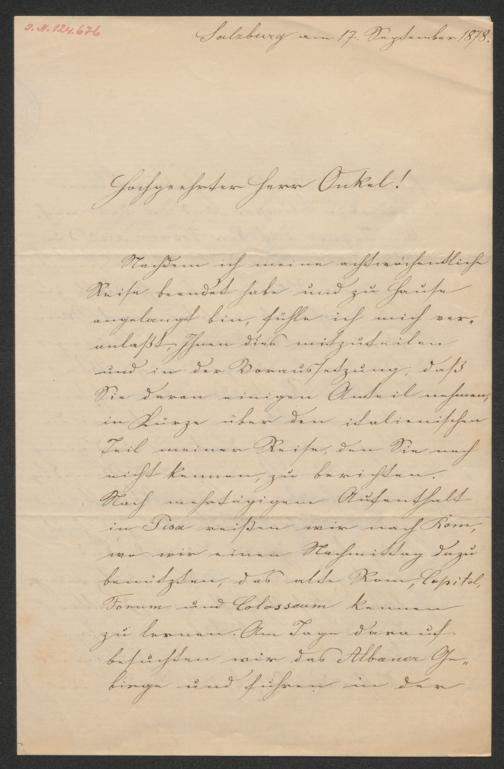 J.N. 124.676
Salzburg am 17. September 1878.
Hochgeehrter Herr Onkel!
Nachdem ich meine achtwöchentliche
Reise beendet habe und zu Hause
angelangt bin, fühle ich mich ver-
anlaßt Ihnen dies mitzuteilen
und in der Voraussetzung, daß
Sie daran einigen Anteil nehmen,
in Kürze über den italienischen
Teil meiner Reise, den Sie noch
nicht kennen, zu berichten.
Nach mehrtägigem Aufenthalt
in Pisa reisten wir nach Rom,
wo wir einen Nachmittag dazu
benützten, das alte Rom, Capitol,
Forum und Colosseum kennen
zu lernen. Am Tage darauf
besuchten wir das Albaner Ge-
birge und fuhren in der